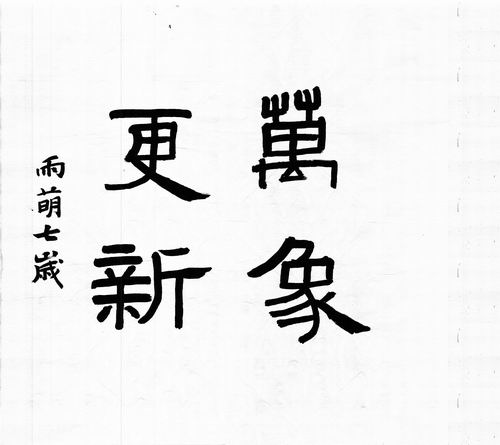 萬象
更新
雨萌七歲